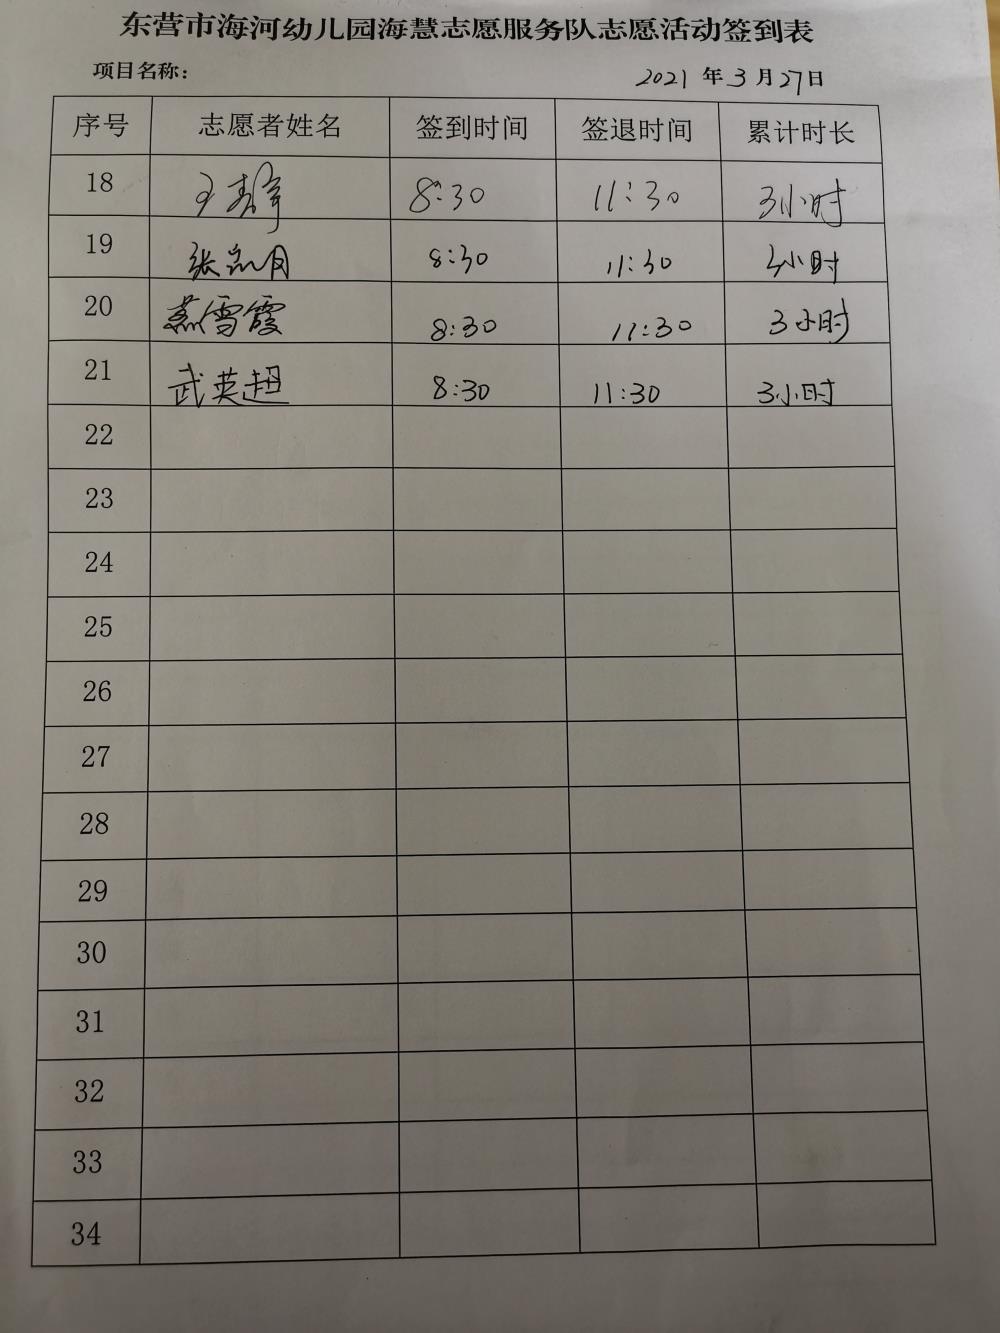 东营市海河幼儿园海慧志愿服务队志愿活动签到表
项目名称： 2021 年 3 月 27 日
序号 志愿者姓名 签到时间 签退时间 累计时长
18 王 8:30 11:30 3小时
19 张 8:30 11:30 3小时
20 燕雪霞 8:30 11:30 3小时
21 武英超 8:30 11:30 3小时
22
23
24
25
26
27
28
29
30
31
32
33
34